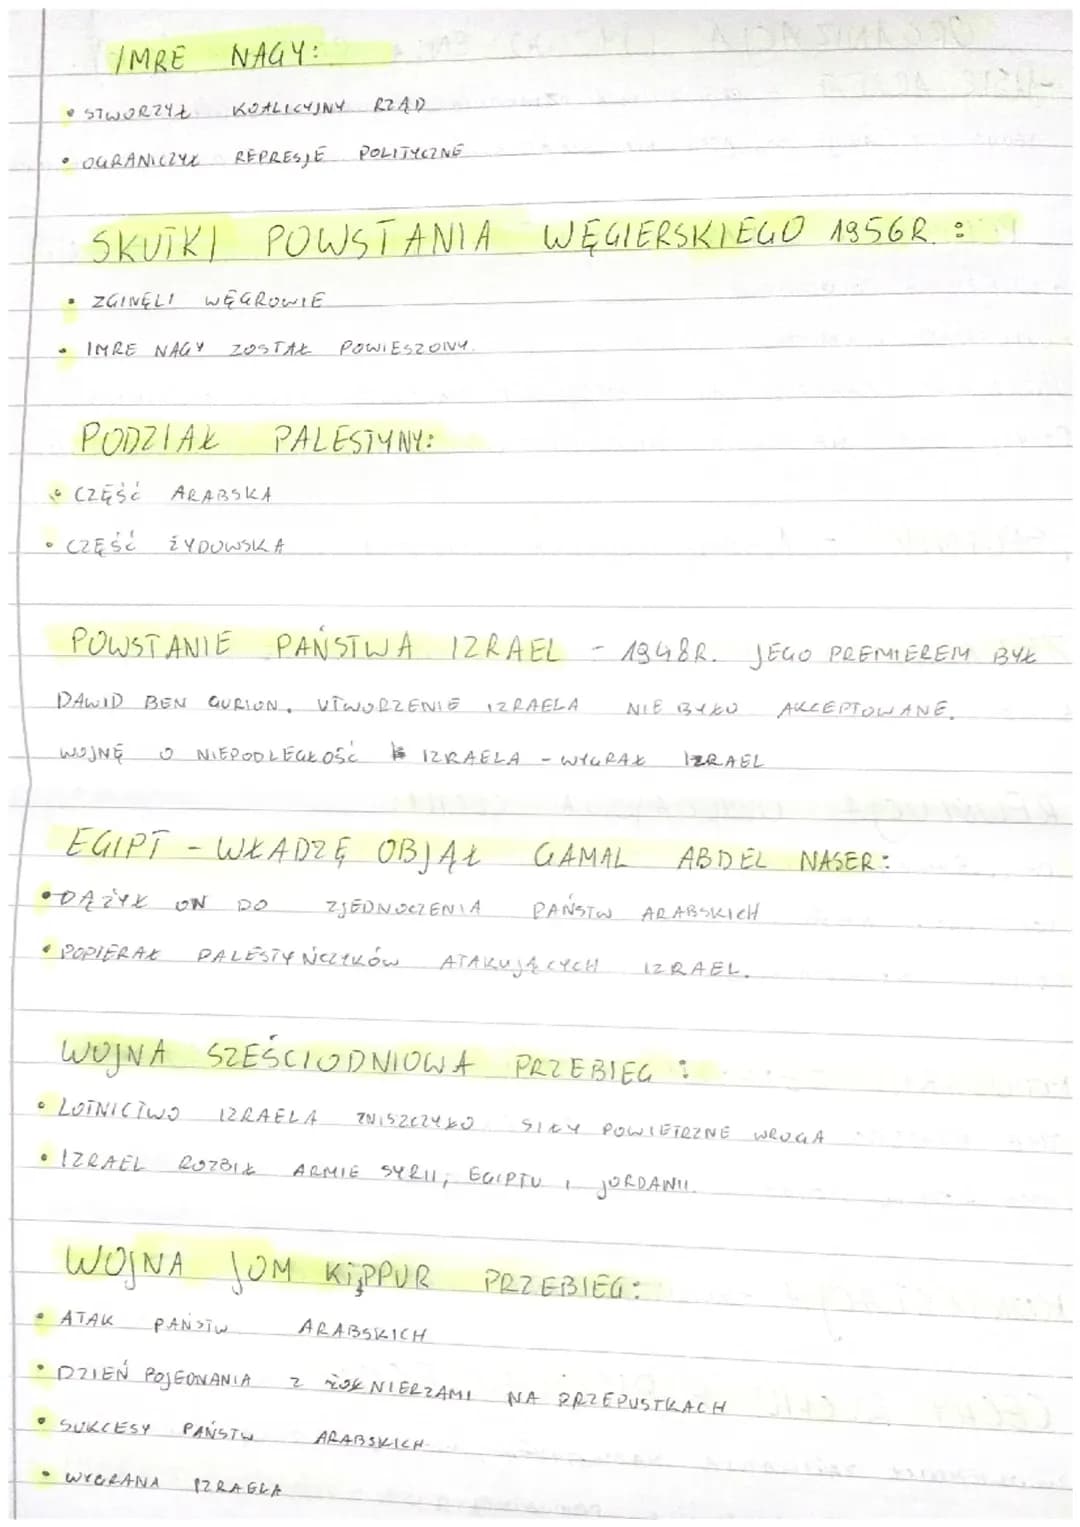 IMRE NAGY:
• STWORZYŁ KOALICYJNY RZĄD
• OGRANICZYŁ REPRESJE POLITYCZNE
SKUTKI POWSTANIA WĘGIERSKIEGO 1956R. :
• ZGINĘLI WĘGROWIE
• IMRE NAGY ZOSTAŁ POWIESZONY.
PODZIAŁ PALESTYNY:
• CZĘŚĆ ARABSKA
• CZĘŚĆ ŻYDOWSKA
POWSTANIE PAŃSTWA IZRAEL - 1948R. JEGO PREMIEREM BYŁ
DAWID BEN GURION. UTWORZENIE IZRAELA NIE BYŁO AKCEPTOWANE.
WOJNĘ O NIEPODLEGŁOŚĆ IZRAELA - WYGRAŁ IZRAEL
EGIPT - WŁADZĘ OBJĄŁ GAMAL ABDEL NASER:
• DĄŻYŁ ON DO ZJEDNOCZENIA PAŃSTW ARABSKICH
• POPIERAŁ PALESTYŃCZYKÓW ATAKUJĄCYCH IZRAEL.
WOJNA SZEŚCIODNIOWA PRZEBIEG :
• LOTNICTWO IZRAELA ZNISZCZYŁO SIŁY POWIETRZNE WROGA
• IZRAEL ROZBIŁ ARMIE SYRII, EGIPTU I JORDANII.
WOJNA JOM KIPPUR PRZEBIEG:
• ATAK PAŃSTW ARABSKICH
• DZIEŃ POJEDNANIA Z ŻOŁNIERZAMI NA PRZEPUSTKACH
• SUKCESY PAŃSTW ARABSKICH
• WYGRANA IZRAELA